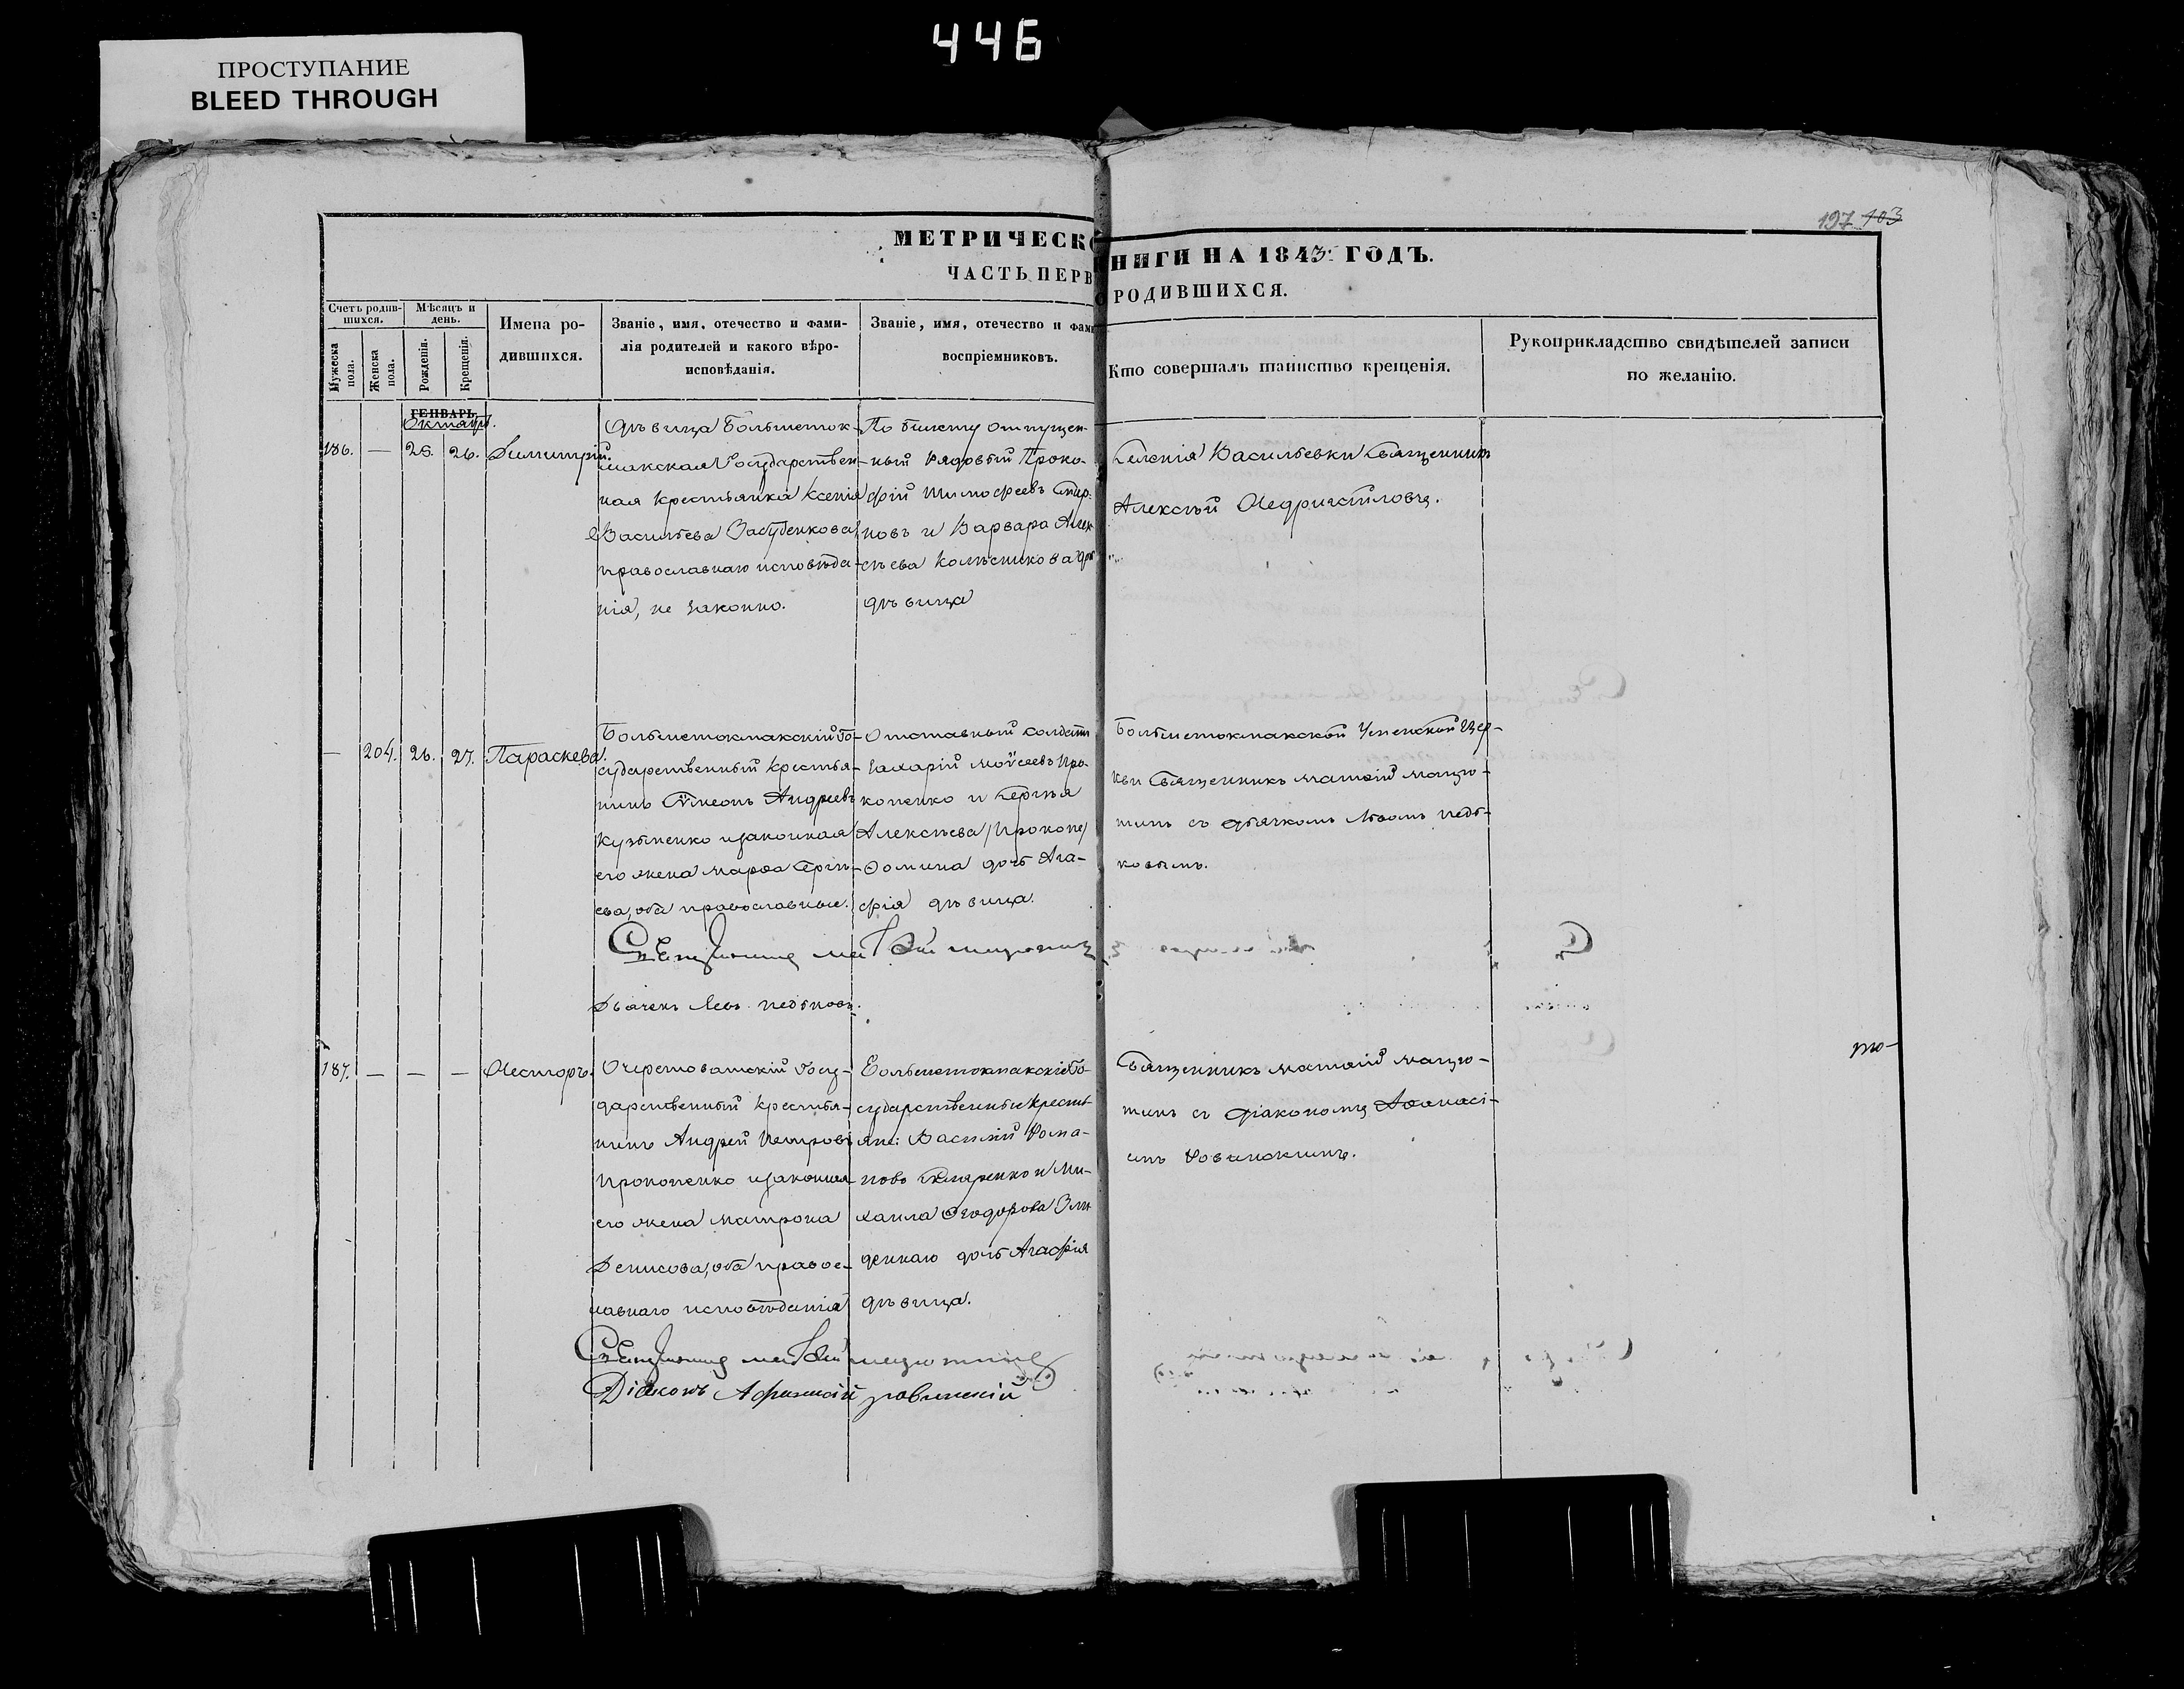 446
ПРОСТУПАНИЕ
BLEED THROUGH
197 103
МЕТРИЧЕСКО
НИГИ НА 1843. ГОДЪ.
ЧАСТЬ ПЕРВ
О РОДИВШИХСЯ.
Счетъ родив-
шихся.
Мѣсяцъ и
день.
Мужеска
пола.
Женска
пола.
Рожденія.
Крещенія.
Имена ро-
дившихся.
Званіе, имя, отечество и фами-
лія родителей и какого вѣро-
исповѣданія.
Званіе, имя, отечество и фами
воспріемниковъ.
Кто совершалъ таинство крещенія.
Рукоприкладство свидѣтелей записи
по желанію.
ГЕНВАРЬ
Октябрь.
186. — 25. 26. Димитрій.
Дѣвица Большеток-
макская Государствен-
ная крестьянка Ксенія
Васильева
православнаго исповѣда-
нія, не законно.
По билету отпущен-
ный Рядовый Проко-
фій Тимофеевъ
новъ и Варвара Алек
сѣева Колѣсникова
дѣвица
Васильевки Священникъ
Алексѣй
— 204. 26. 27. Параскева.
Большетокмакскій Го-
сударственный крестья-
нинъ Сѵмеонъ Андреевъ
Кузьменко и законная
его жена Марѳа Сергѣ-
ева, оба православные.
Отставный солдатъ
Захарій Моѵсеевъ Про-
копенко и Сергѣя
Алексѣева
Ѳомина дочь Ага-
фія дѣвица.
Большетокмакской Успенской Цер-
кви Священникъ Матѳій Мацю-
тинъ съ дьячкомъ Львомъ
ковымъ.
Священникъ Матѳій
Дьячекъ Левъ
187. — — — Несторъ.
Очеретоватскій Госу-
дарственный крестья-
нинъ Андрей Петровъ
Прокопенко и законная
его жена Матрона
Денисова, оба правос-
лавнаго исповѣданія
Большетокмакскіе Го-
сударственные крестья-
яне: Василій Рома-
новъ Скляренко и Ми-
хаила Ѳеодорова
деннаго дочь Агафія
дѣвица.
Священникъ Матѳій Мацю-
тинъ съ Діакономъ Аѳанасі-
емъ Ровинскимъ.
то-
Священникъ Матѳій Мацютинъ
Діаконъ Афанасій Ровинскій